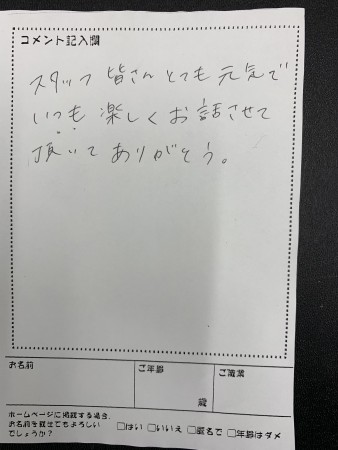 コメント記入欄
スタッフ 皆さん とても 元気で
いつも 楽しく お話させて
頂いて ありがとう。
お名前
ご年齢
ご職業
歳
ホームページに掲載する場合、
お名前を載せてもよろしい
でしょうか?
□はい □いいえ □匿名で □年齢はダメ